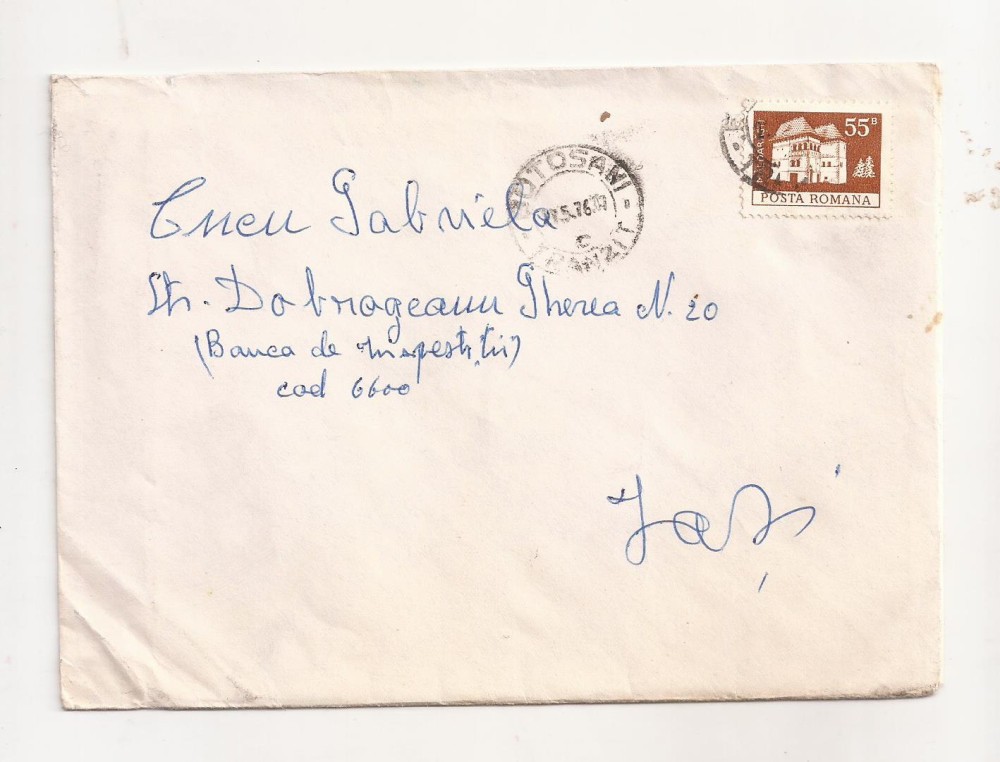 55 B
POSTA ROMANA
BOTOSANI
5.76.19
C
TRANZIT
Cucu Gabriela
Str. Dobrogeanu Gherea N. 20
(Banca de Investiții)
cod 6600
Iași